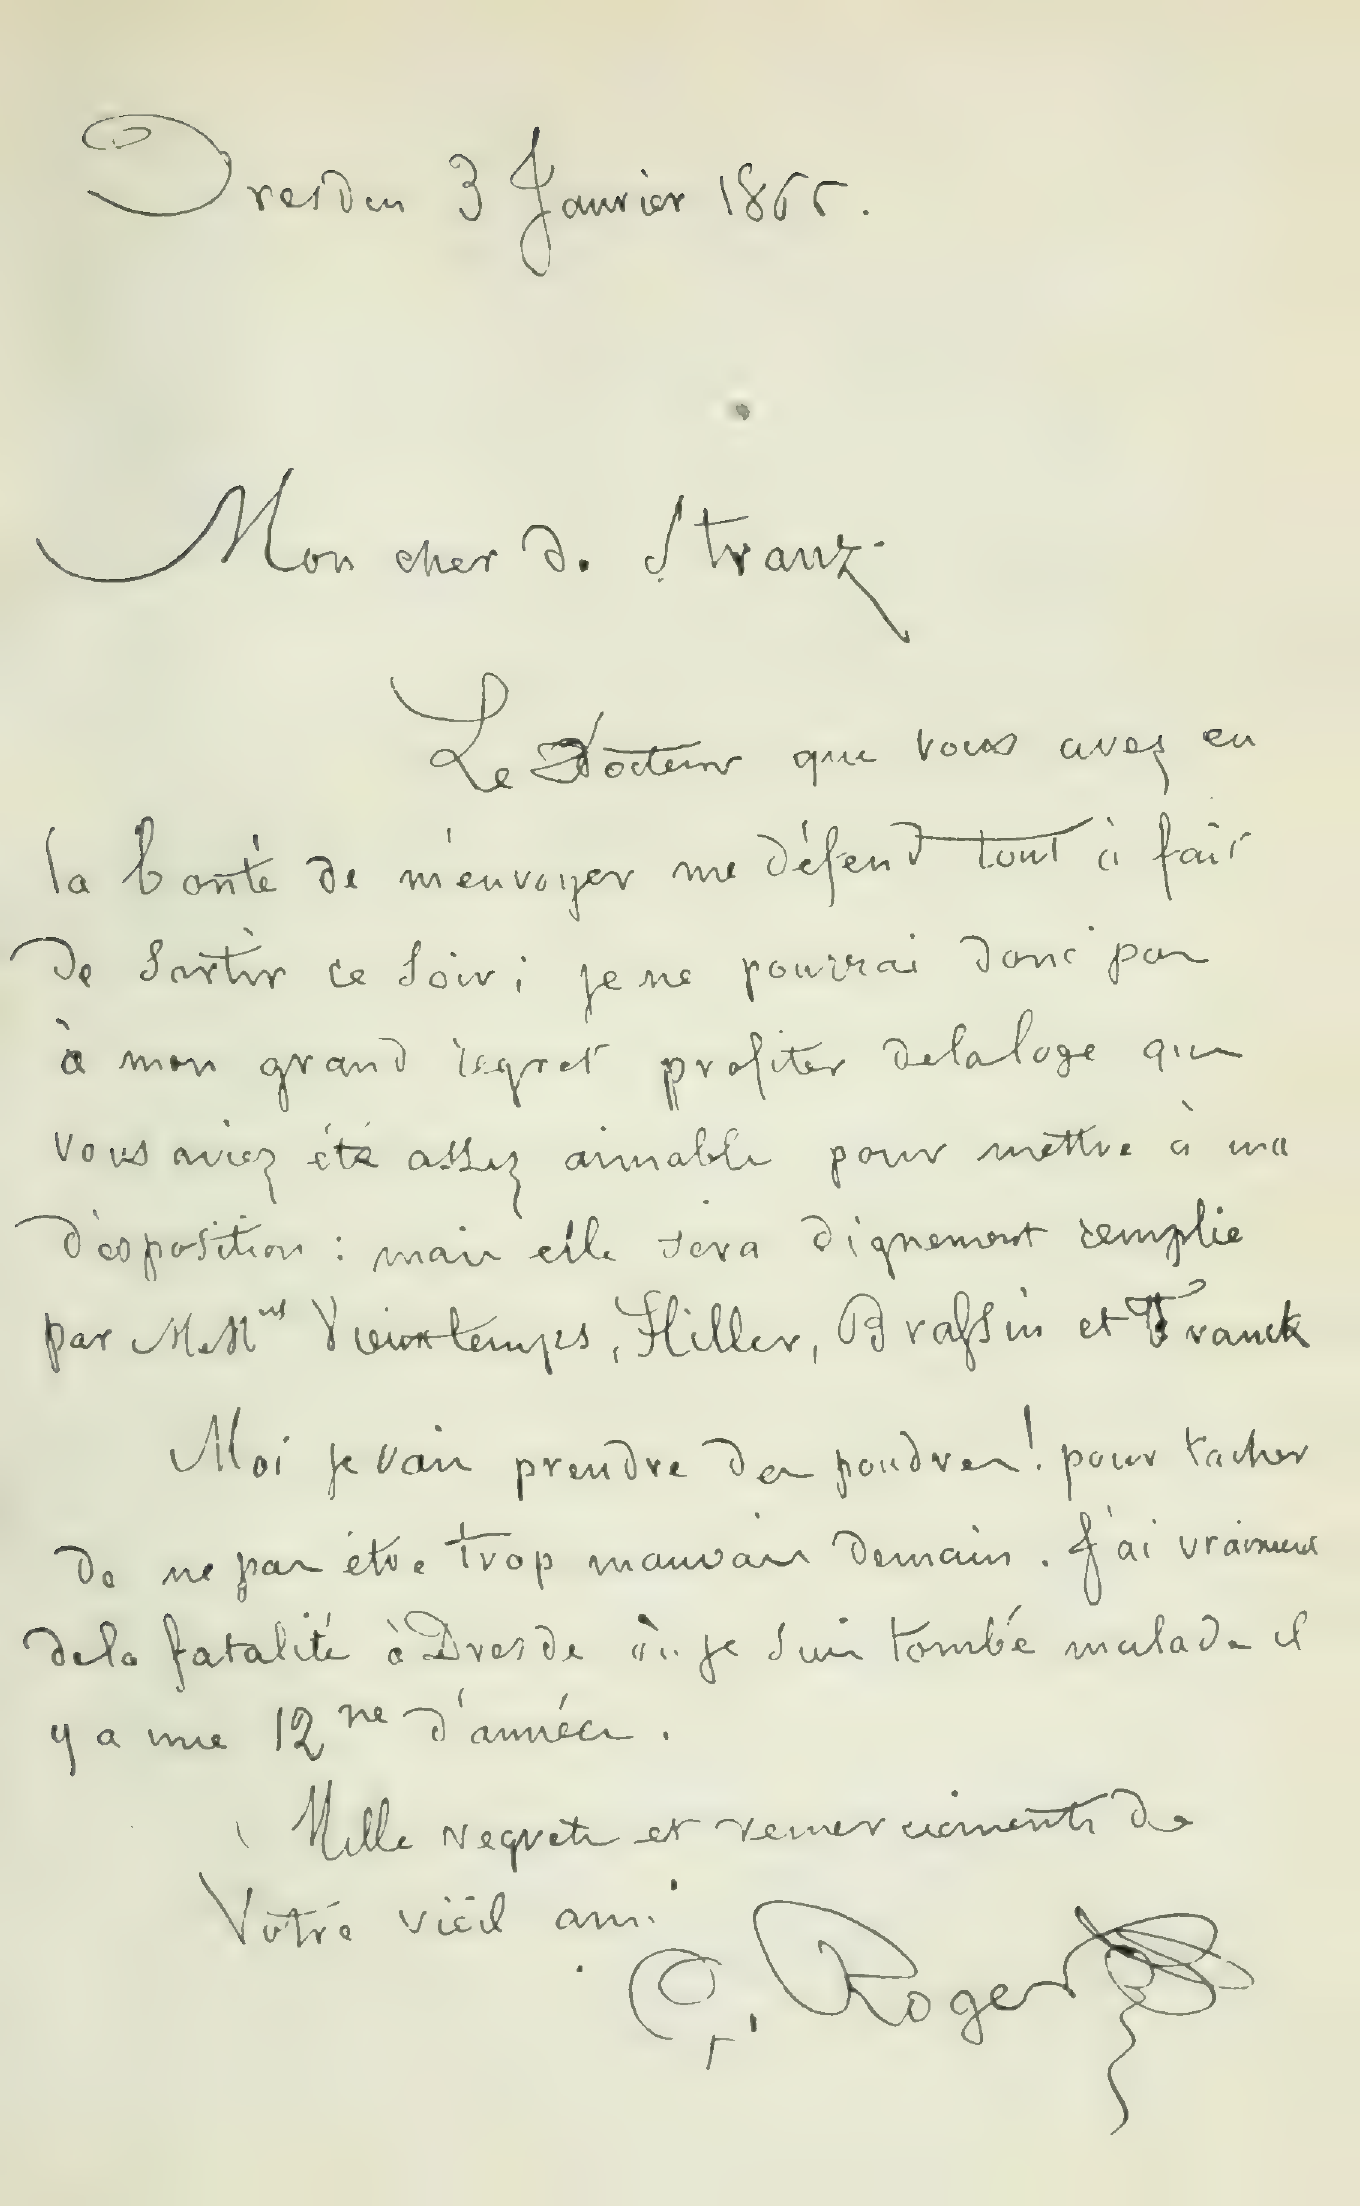 Dresden 3 Janvier 1855.
Mon cher d. Stranz.
Le Docteur que vous avez eu
la bonté de m'envoyer me défend tout à fait
de sortir ce soir; je ne pourrai donc pas
à mon grand regret profiter de la loge que
vous aviez été assez aimable pour mettre à ma
disposition : mais elle sera dignement remplie
par M.M.rs Vieuxtemps, Hiller, Brassin et Franck
Moi je vais prendre des poudres! pour tacher
de ne pas être trop mauvais demain. J'ai vraiment
de la fatalité à Dresde où je suis tombé malade il
y a une 12ne d'années.
Mille regrets et remerciements de
Votre vieil ami
G. Roger